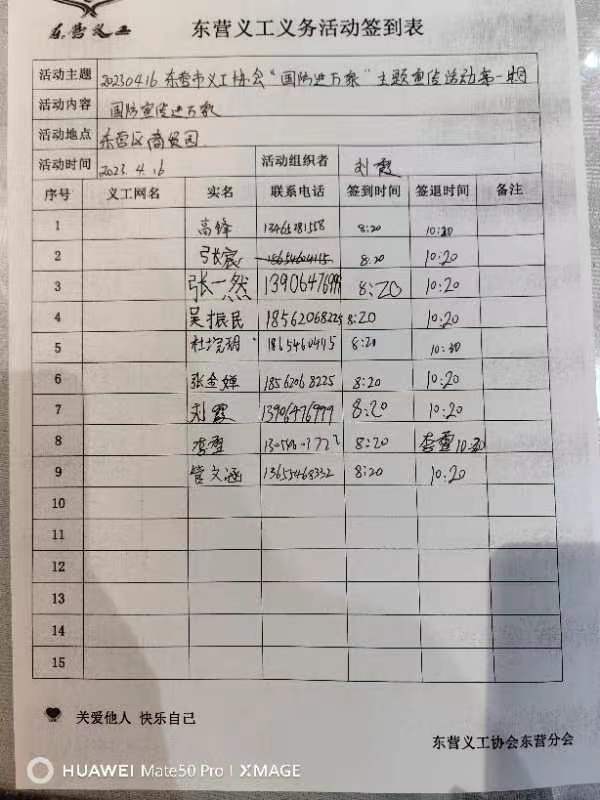 东营义工
东营义工义务活动签到表
活动主题 20230416 东营市义工协会“国防进万家”主题宣传活动第一期
活动内容 国防宣传进万家
活动地点 东营区商贸园
活动时间 2023.4.16 活动组织者 刘霞
序号 义工网名 实名 联系电话 签到时间 签退时间 备注
1 高锋 13465281558 8:20 10:20
2 张宸 8:20 10:20
3 张一然 13906476999 8:20 10:20
4 吴振民 18562068225 8:20 10:20
5 8:20 10:30
6 张金婵 18562068225 8:20 10:20
7 刘霞 13906476999 8:20 10:20
8 李雪 8:20 李雪 10:20
9 管文涵 13655468332 8:20 10:20
10
11
12
13
14
15
关爱他人 快乐自己
东营义工协会东营分会
HUAWEI Mate50 Pro | XMAGE